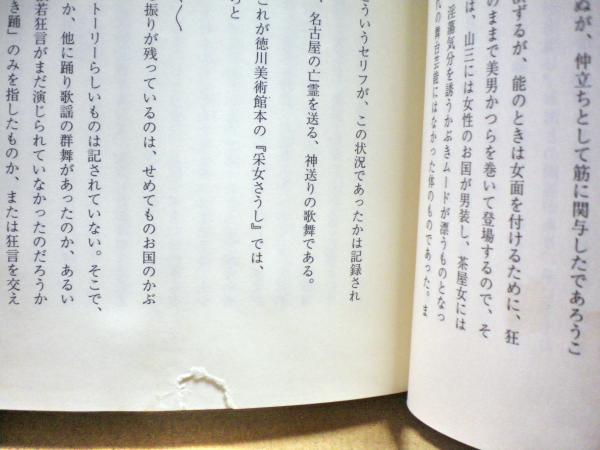 ぬが、仲立ちとして筋に関与したであろうこ
演ずるが、能のときは女面を付けるために、狂
のままで美男かつらを巻いて登場するので、そ
は、山三には女性のお国が男装し、茶屋女には
淫蕩気分を誘うかぶきムードが漂うものとなっ
代の舞台芸能にはなかった体のものであった。ま
ういうセリフが、この状況であったかは記録され
、名古屋の亡霊を送る、神送りの歌舞である。
これが徳川美術館本の『采女さうし』では、
らと
く
振りが残っているのは、せめてものお国のかぶ
トーリーらしいものは記されていない。そこで、
か、他に踊り歌謡の群舞があったのか、あるい
若狂言がまだ演じられていなかったのだろうか
き踊」のみを指したものか、または狂言を交え